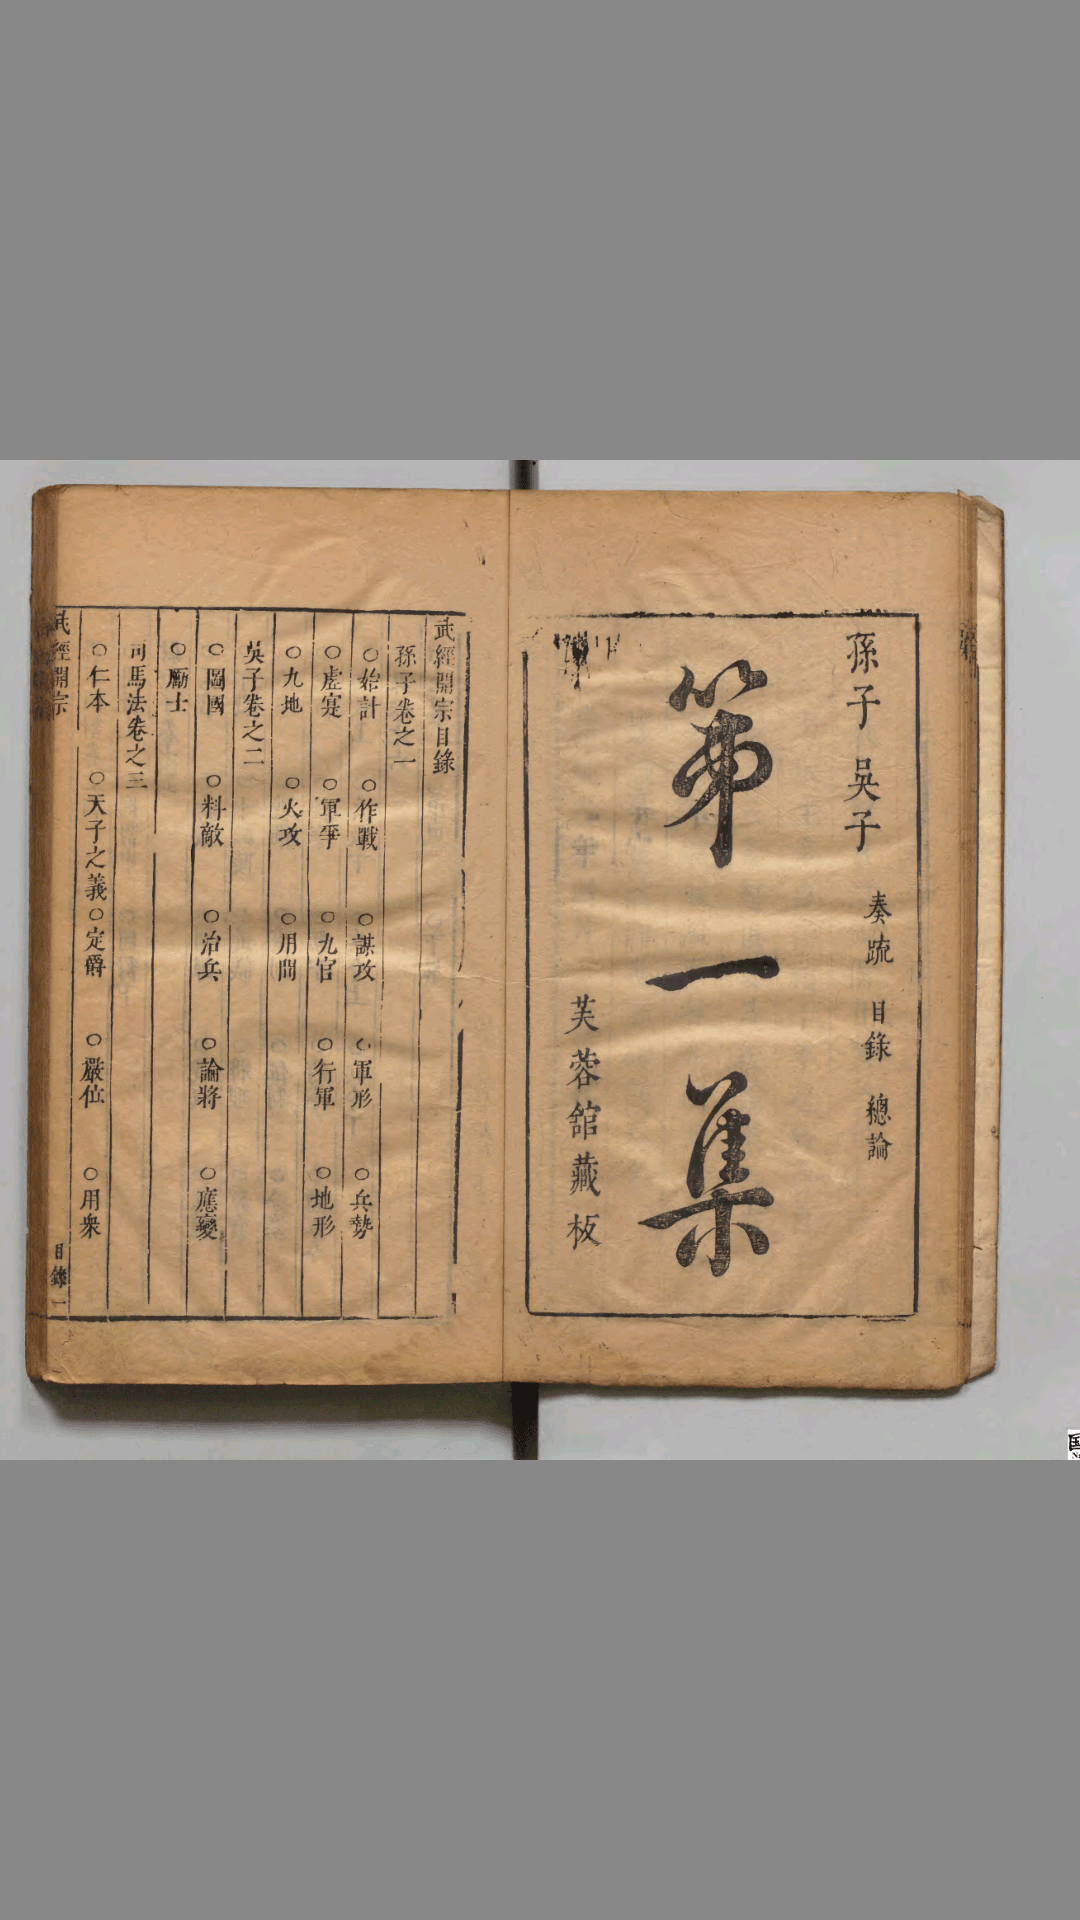 孫子 吳子 奏疏 目錄 總論
第一集
芙蓉舘藏板
武經開宗目錄
孫子卷之一
○始計 ○作戰 ○謀攻 ○軍形 ○兵勢
○虛寔 ○軍爭 ○九官 ○行軍 ○地形
○九地 ○火攻 ○用間
吳子卷之二
○圖國 ○料敵 ○治兵 ○論將 ○應變
○勵士
司馬法卷之三
○仁本 ○天子之義 ○定爵 ○嚴位 ○用衆
武經開宗 目錄 一